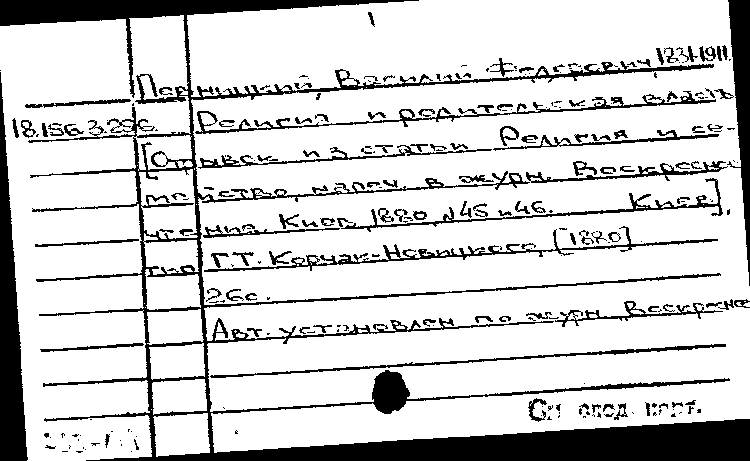 1
Певницкий, Василий Федорович, 1831-1911
18.156.3.296 Религия и родительская власть
[Отрывок из статьи Религия и се-
мейство, напеч. в журн. Воскресное
чтение. Киев, 1880, №45 и 46. Киев],
тип. Г.Т. Корчак-Новицкого, [1880]
26с.
Авт. установлен по журн. Воскресное
См след. карт.